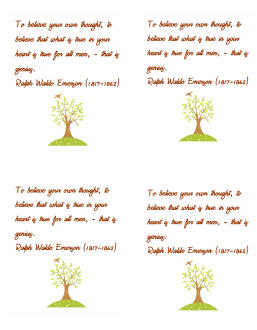 To believe your own thought, to
believe that what is true in your
heart is true for all men, - that is
genius.
Ralph Waldo Emerson (1817-1862)
To believe your own thought, to
believe that what is true in your
heart is true for all men, - that is
genius.
Ralph Waldo Emerson (1817-1862)
To believe your own thought, to
believe that what is true in your
heart is true for all men, - that is
genius.
Ralph Waldo Emerson (1817-1862)
To believe your own thought, to
believe that what is true in your
heart is true for all men, - that is
genius.
Ralph Waldo Emerson (1817-1862)